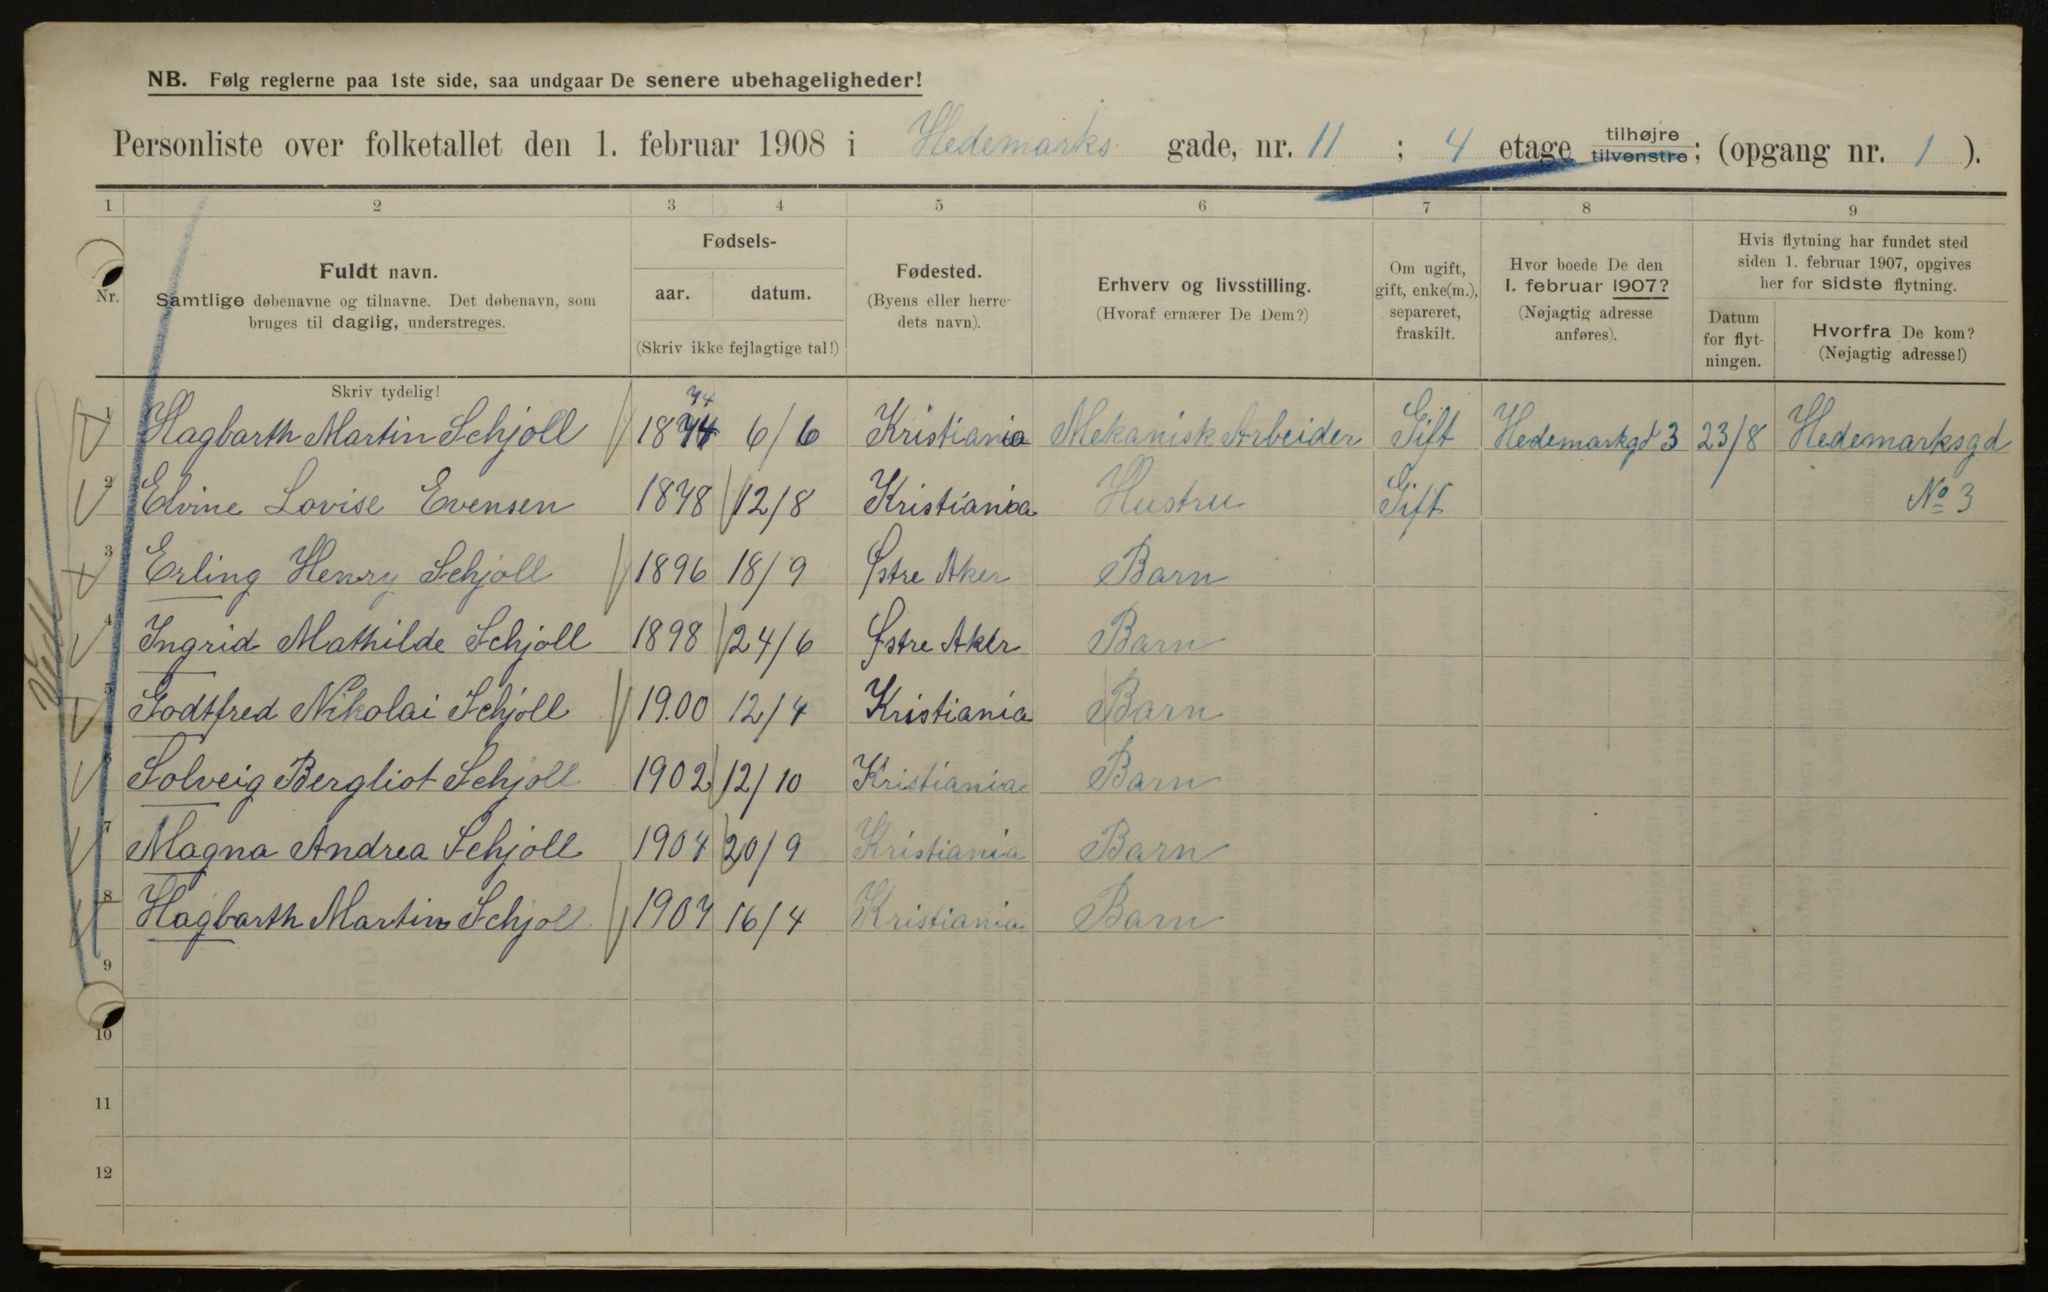 NB. Følg reglerne paa 1ste side, saa undgaar De senere ubehageligheder!
Personliste over folketallet den 1. februar 1908 i Hedemarks gade, nr. 11 ; 4 etage tilhøjre tilvenstre; (opgang nr. 1 ).
1 2 3 4 5 6 7 8 9
Nr.
Fuldt navn.
Samtlige døbenavne og tilnavne. Det døbenavn, som
bruges til daglig, understreges.
Skriv tydelig!
Fødsels-
aar. datum.
(Skriv ikke fejlagtige tal!)
Fødested.
(Byens eller herre-
dets navn).
Erhverv og livsstilling.
(Hvoraf ernærer De Dem?)
Om ugift,
gift, enke(m.),
separeret,
fraskilt.
Hvor boede De den
1. februar 1907?
(Nøjagtig adresse
anføres).
Hvis flytning har fundet sted
siden 1. februar 1907, opgives
her for sidste flytning.
Datum
for flyt-
ningen.
Hvorfra De kom?
(Nøjagtig adresse!)
74
1 Hagbarth Martin Schjoll 1874 6/6 Kristiania Mekanisk Arbeider Gift Hedemarkgd 3 23/8 Hedemarksgd
2 Elvine Lovise Evensen 1878 12/8 Kristiania Hustru Gift No 3
3 Erling Henry Schjoll 1896 18/9 Østre Aker Barn
4 Ingrid Mathilde Schjoll 1898 24/6 Østre Aker Barn
5 Godtfred Nikolai Schjoll 19.00 12/4 Kristiania Barn
6 Solveig Bergliot Schjoll 1902 12/10 Kristiania Barn
7 Magna Andrea Schjoll 1904 20/9 Kristiania Barn
8 Hagbarth Martin Schjoll 1907 16/4 Kristiania Barn
9
10
11
12